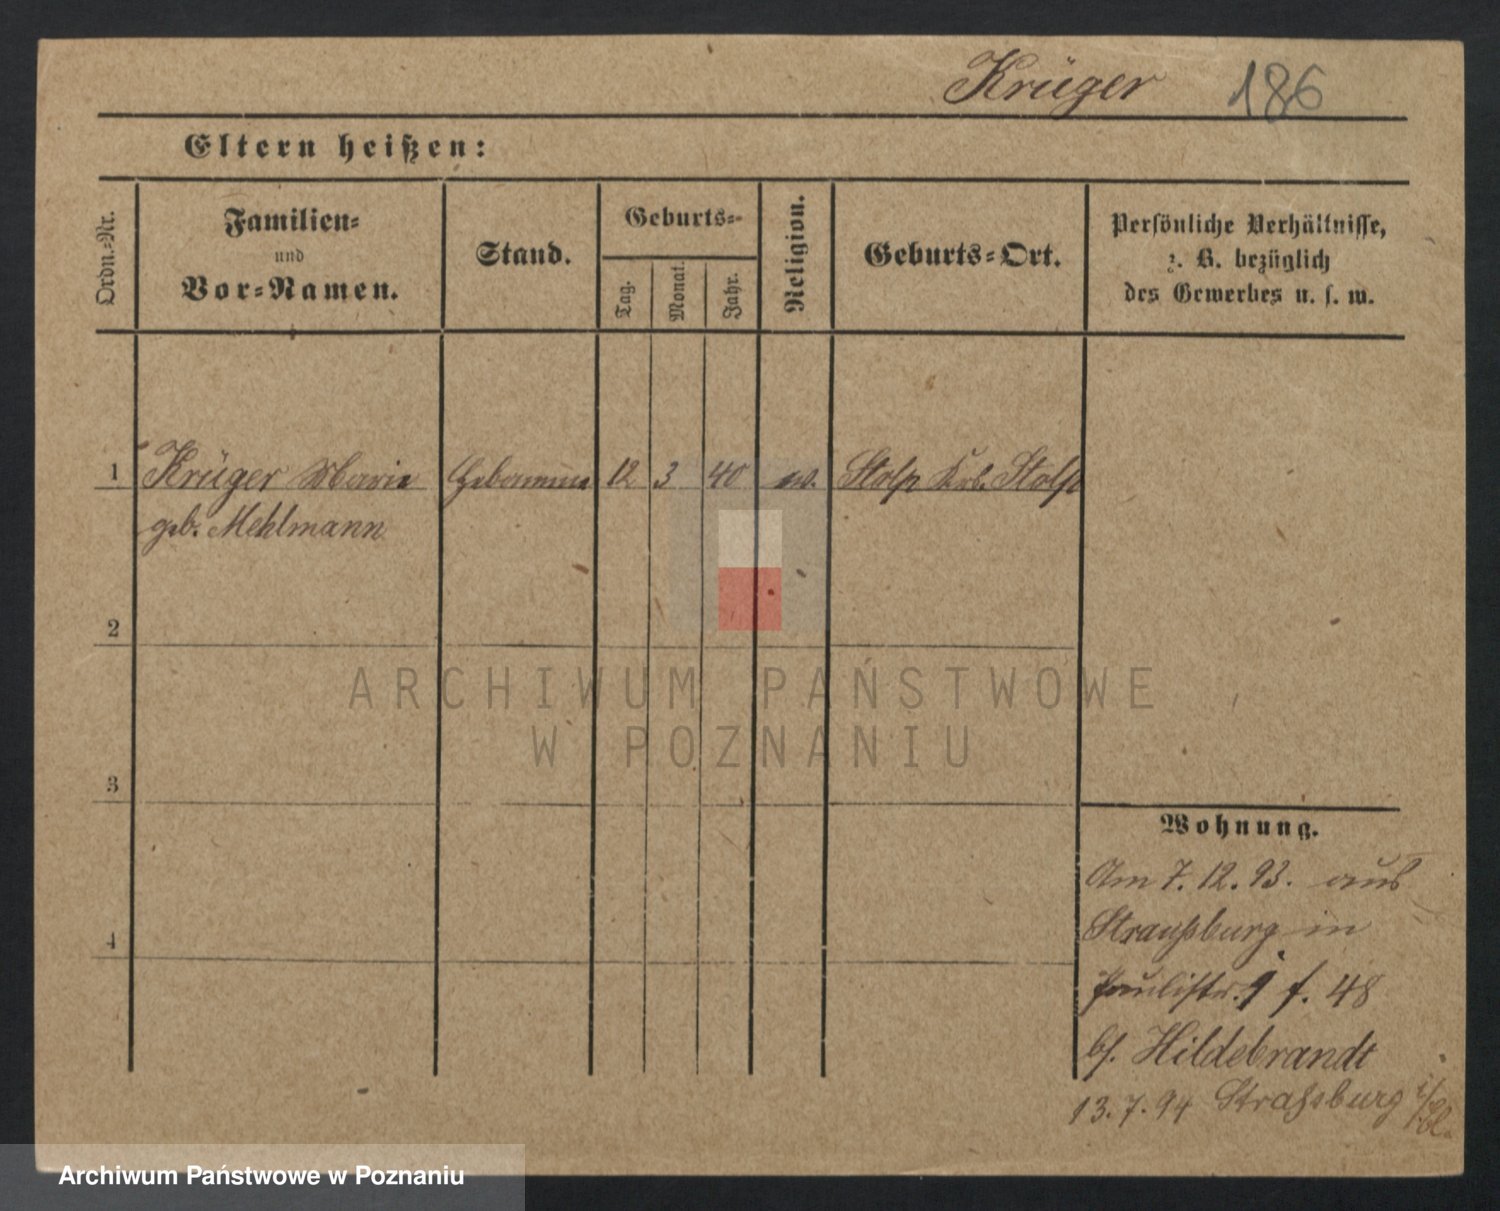 Krüger 186
Eltern heißen:
Ordn.=Nr.
Familien=
und
Vor=Namen.
Stand.
Geburts=
Tag.
Monat.
Jahr.
Religion.
Geburts=Ort.
Persönliche Verhältnisse,
z. B. bezüglich
des Gewerbes u. s. w.
1 Krüger Marie Hebamme 12 3 40 ev. Stolp Krb. Stolp
geb. Mehlmann
2
ARCHIWUM PAŃSTWOWE
W POZNANIU
3
Wohnung.
Am 7. 12. 93. aus
Straußburg in
Paulistr. 9 f. 48
bf. Hildebrandt
4
13. 7. 94 Straßburg i/
Archiwum Państwowe w Poznaniu